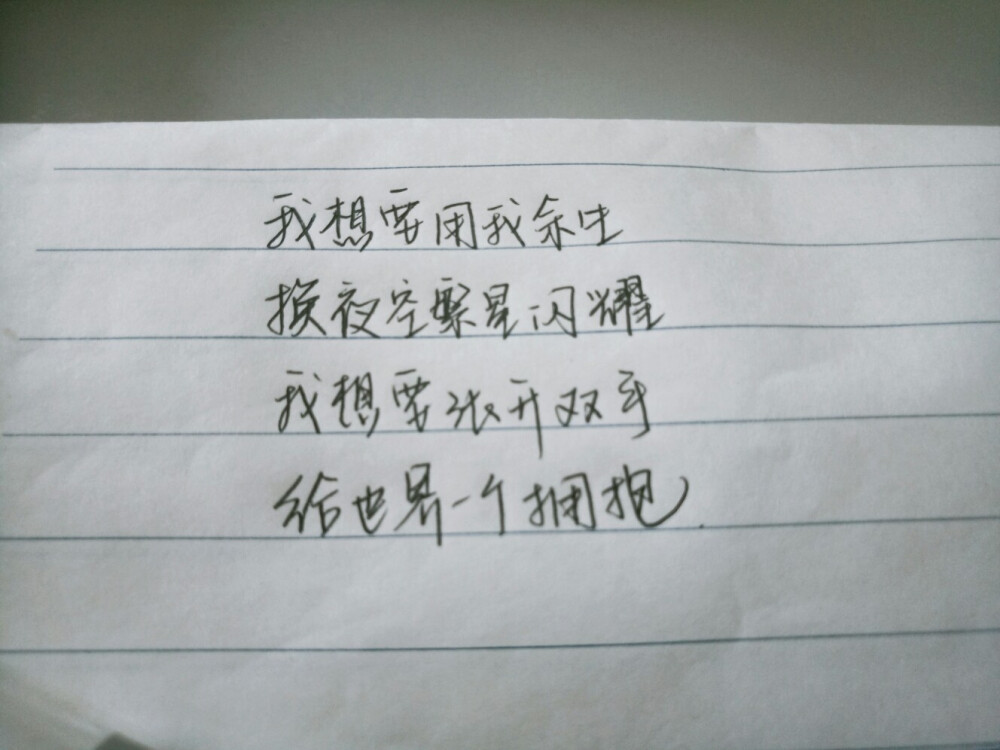 我想要用我余生
换夜空繁星闪耀
我想要张开双手
给世界一个拥抱.